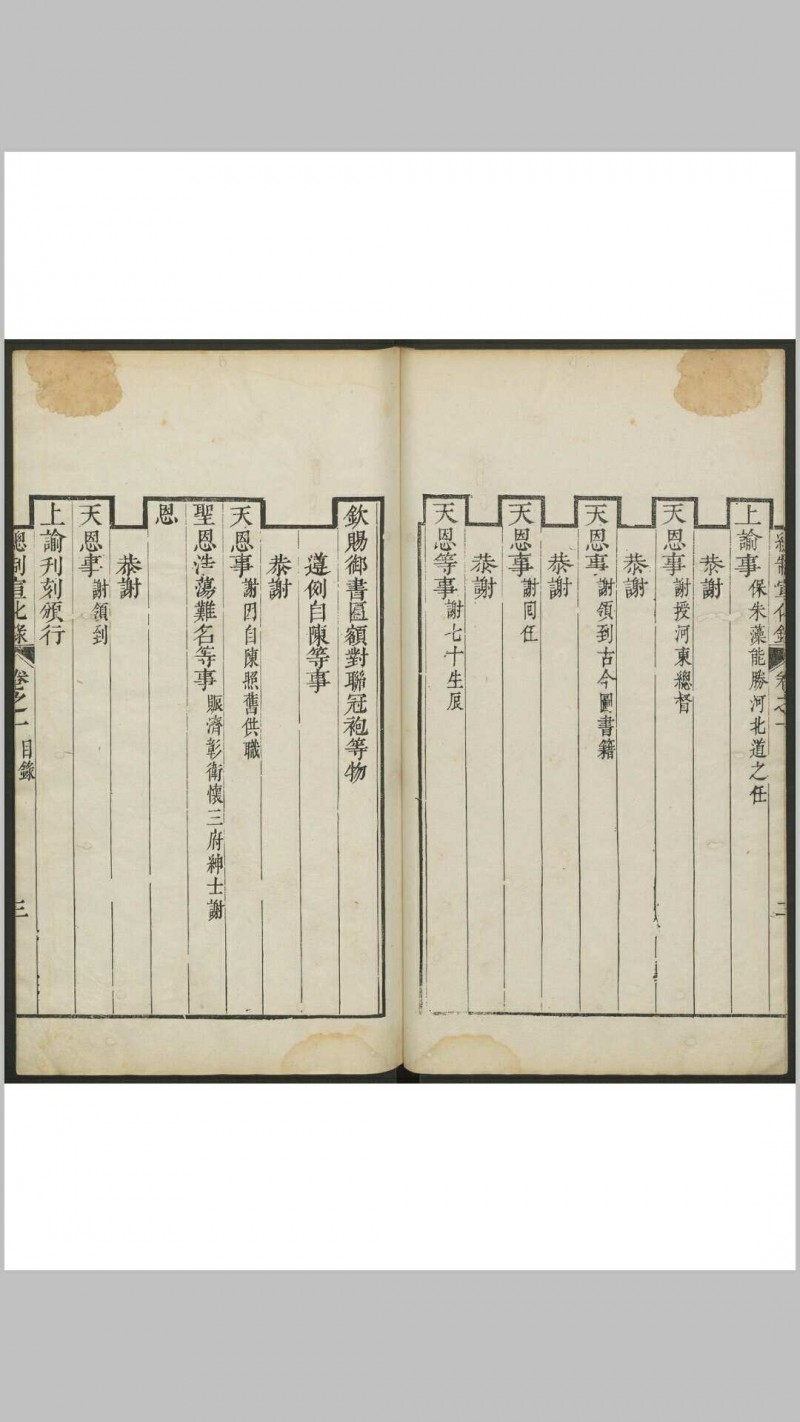 總制宣化錄 卷之一 二
上諭事 保朱藻能勝河北道之任
恭謝
天恩事 謝授河東總督
恭謝
天恩事 謝領到古今圖書籍
恭謝
天恩事 謝回任
恭謝
天恩等事 謝七十生辰
欽賜御書匾額對聯冠袍等物
遵例自陳等事
恭謝
天恩事 謝因自陳照舊供職
聖恩浩蕩難名等事 賑濟彰衛懷三府紳士謝
恩
恭謝
天恩事 謝領到
上諭刊刻頒行
總制宣化錄 卷之一 目錄 三